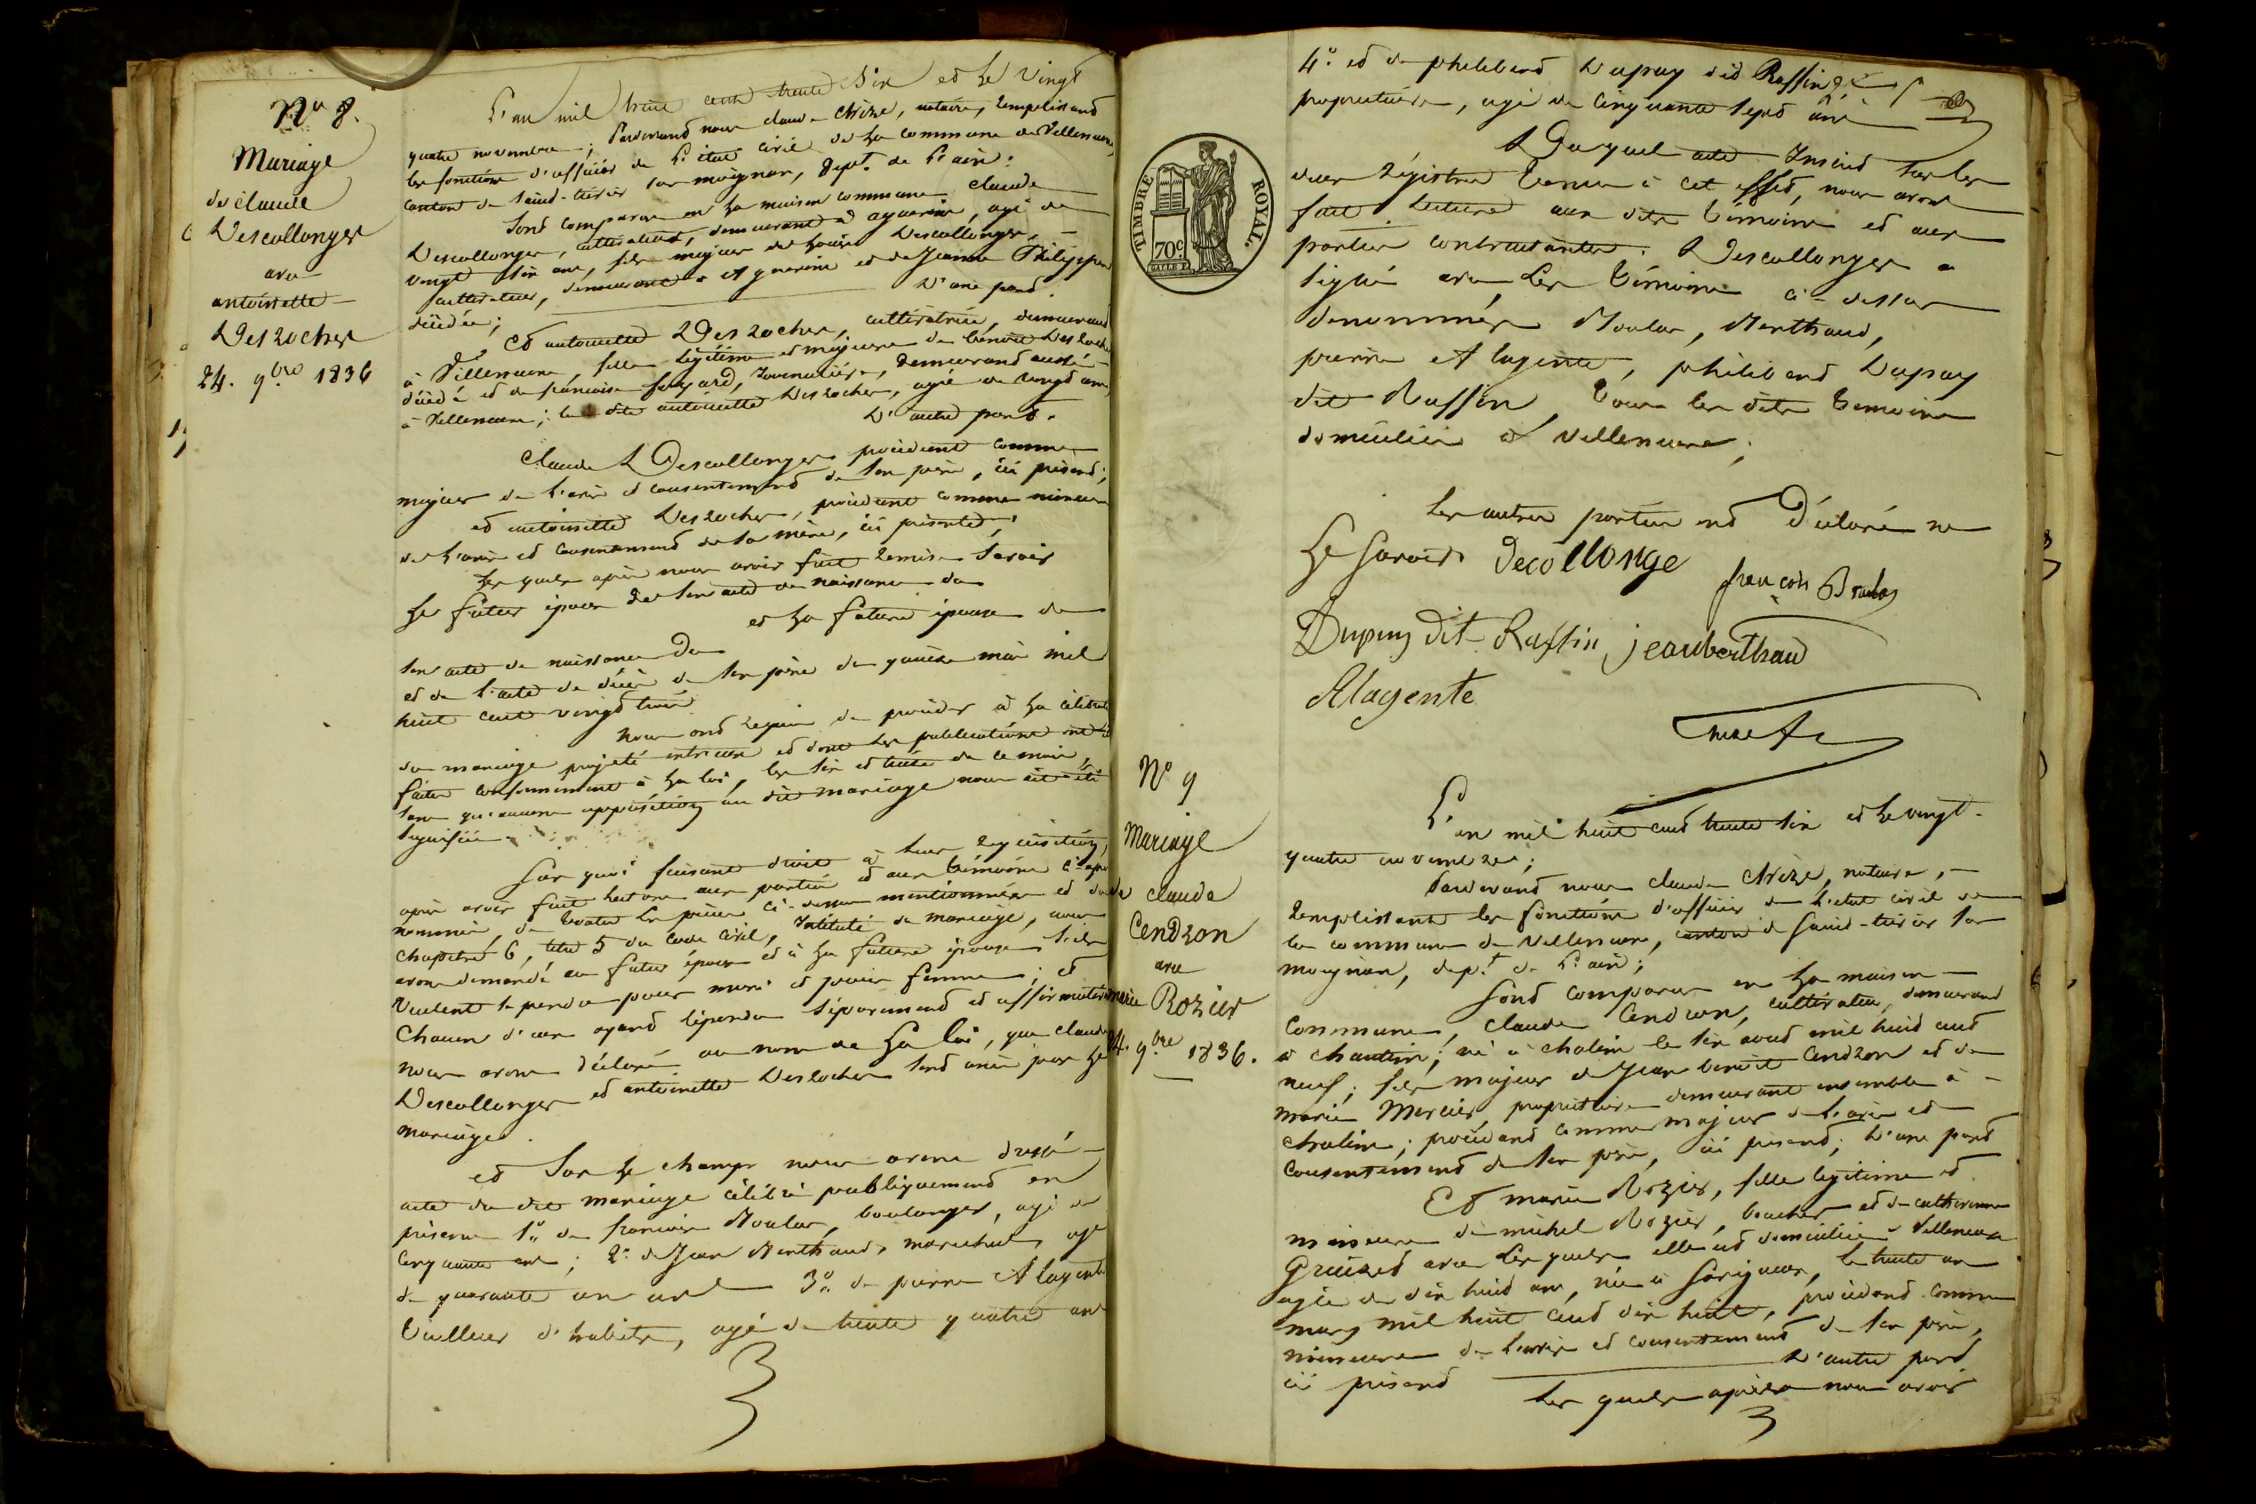 No 8.
Mariage
de claude
Descollonges
avec
antoinette
Desrocher
24. 9bre 1836
L'an mil huit cent trente Six et Le Vingt
quatre novembre; Pardevant nous claude notaire, remplissant
les fonctions d'officier de L'état civil de La commune de Villeneuve,
canton de saint-trivier sur moignan, dept. de L'ain.
Sont comparus en La maison commune claude
Descollonges, cultivateur, demeurant à agnereins, agé de
vingt Six ans, fils majeur de Descollonges,
cultivateur, demeurant à agnereins et de Jeanne Philippon
décédée; D'une part.
Et antoinette Desrocher, cultivatrice, demeurant
à Villeneuve, fille légitime et mineure de benoit Desrocher
décédé et de francoise journalière, demeurant aussi
à Villeneuve; la dite antoinette Desrocher, agée de vingt ans,
D'autre part.
Claude Descollonges procédant comme
majeur de l'avis et consentement de son père, ici présent;
et antoinette Desrocher, procédant comme mineure
de L'avis et consentement de sa mère, ici présente;
Les quels après nous avoir fait remise savoir
Le futur époux de son acte de naissance du
et La future épouse de
son acte de naissance Du
et de l'acte de décès de son père du quinze mai mil
huit cent vingt trois
Nous ont requis de procéder à La célébration
du mariage projeté entr'eux et dont les publications ont été
faites conformément à La loi, les six et treize de ce mois,
sans qu'aucune opposition au dit mariage nous ait été
signifiée.
Sur quoi faisant droit à leur réquisition,
après avoir fait lecture aux parties et aux témoins ci-après
nommés, de toutes les pièces ci-dessus mentionnées et du
chapitre 6, titre 5 du code civil, Intitulé du mariage, nous
avons demandé au futur époux et à La future épouse s'ils
veulent se prendre pour mari et pour femme; et
chacun d'eux ayant répondu séparément et affirmativement
nous avons déclaré au nom de La loi, que claude
Descollonges et antoinette Desrocher sont unis par Le
mariage.
et Sur Le champ nous avons dressé
acte du dit mariage célébré publiquement en
présence 1o. de francois Moulas, boulanger, agé de
cinquante ans; 2o. de Jean Berthaud, marechal, agé
de quarante un ans 3o. de pierre Alagente
tailleur d'habits, agé de trente quatre ans
4o. et de philibert Dupuy dit Raffin
propriétaire, agé de cinquante sept ans
Duquel acte Inscrit sur les
deux régistres tenus à cet effet, nous avons
fait lecture aux dits témoins et aux
parties contractantes. Descollonges a
signé avec Les témoins ci-dessus
denommés Moulas, Berthaud,
pierre Alagente, philibert Dupuy
dit Raffin, tous les dits témoins
domiciliés à Villeneuve;
Les autres parties ont déclaré ne
Le savoir Decollonge
françois
Dupuy dit Raffin jean berthaud
Alagente
TIMBRE ROYAL.
70c
No 9
Mariage
de claude
Cendron
avec
marie Rozier
24. 9bre 1836.
L'an mil huit cent trente six et Le vingt-
quatre novembre;
Pardevant nous claude notaire,
remplissant les fonctions d'officier de L'état civil de
la commune de Villeneuve, canton de saint-trivier sur
moignan, dept. de L'ain;
Sont comparus en La maison
commune, claude Cendron, cultivateur, demeurant
à chaneins, né à chaleins le six aout mil huit cent
neuf; fils majeur de Jean benoit Cendron et de
marie Mercier, propriétaires demeurant ensemble à
chaleins; procédant comme majeur de l'avis et
consentement de son père, ici présent; D'une part
Et marie Rozier, fille légitime et
mineure de michel Rozier, boucher et de catherine
avec Lesquels elle est domiciliée à Villeneuve
agée de dix huit ans, née à Savigneux, le trente un
mars mil huit cent dix huit, procédant comme
mineure de l'avis et consentement de son père,
ici présent D'autre part
Les quels après nous avoir